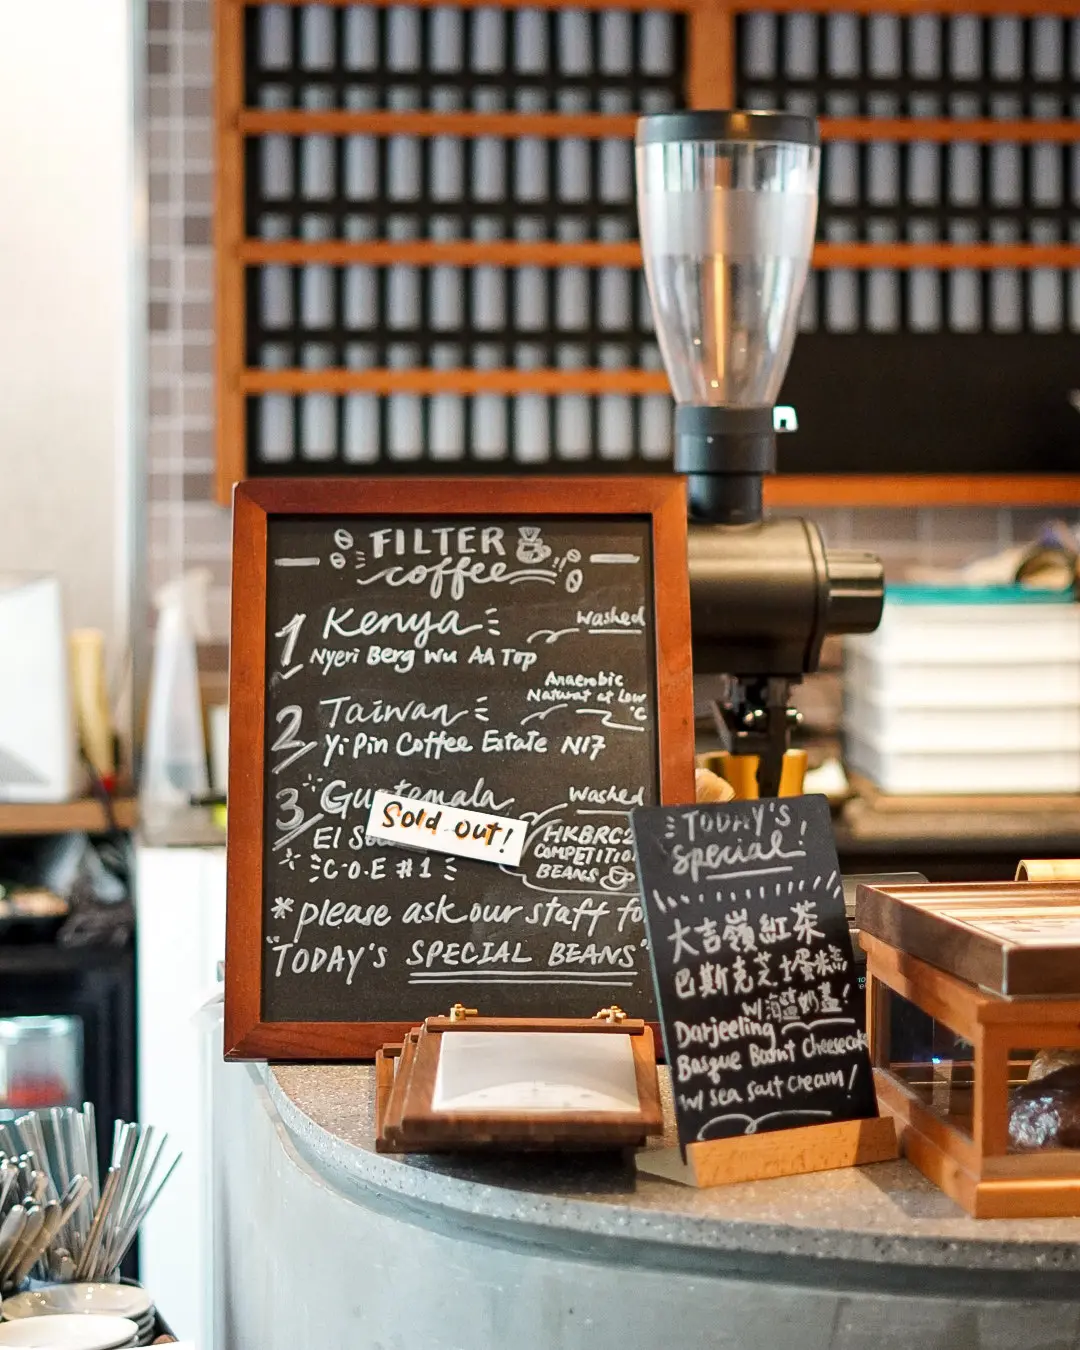 FILTER
coffee
1 Kenya
Washed
Nyeri Berg Wu AA Top
2 Taiwan
Anaerobic
Natural at Low
°C
Yi Pin Coffee Estate N17
3 Guatemala
Washed
Sold out!
El
C.O.E #1
HKBRC2
COMPETITIO
BEANS
*please ask our staff fo
"TODAY'S SPECIAL BEANS"
TODAY'S
Special!
大吉嶺紅茶
巴斯克芝士蛋糕
w/海鹽奶蓋!
Darjeeling
Basque Burnt Cheesecake
w/ sea salt cream!